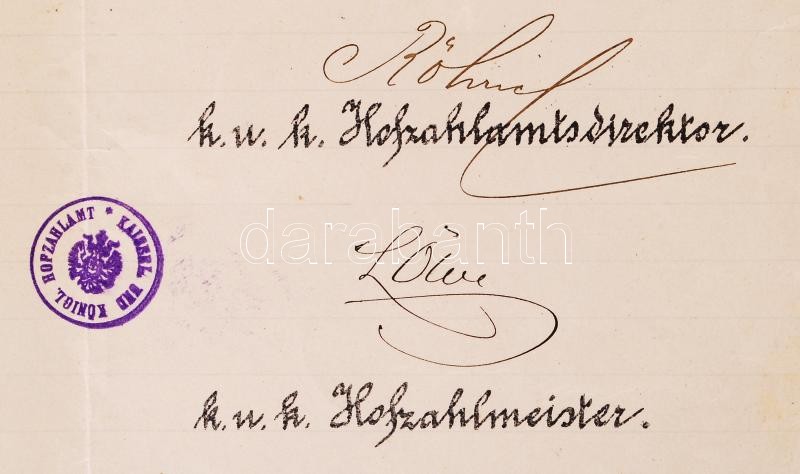 Röhrich
k. u. k. Hofzahlamtsdirektor.
KAISERL. UND KÖNIGL. HOFZAHLAMT *
darabanth
Löwe
k. u. k. Hofzahlmeister.